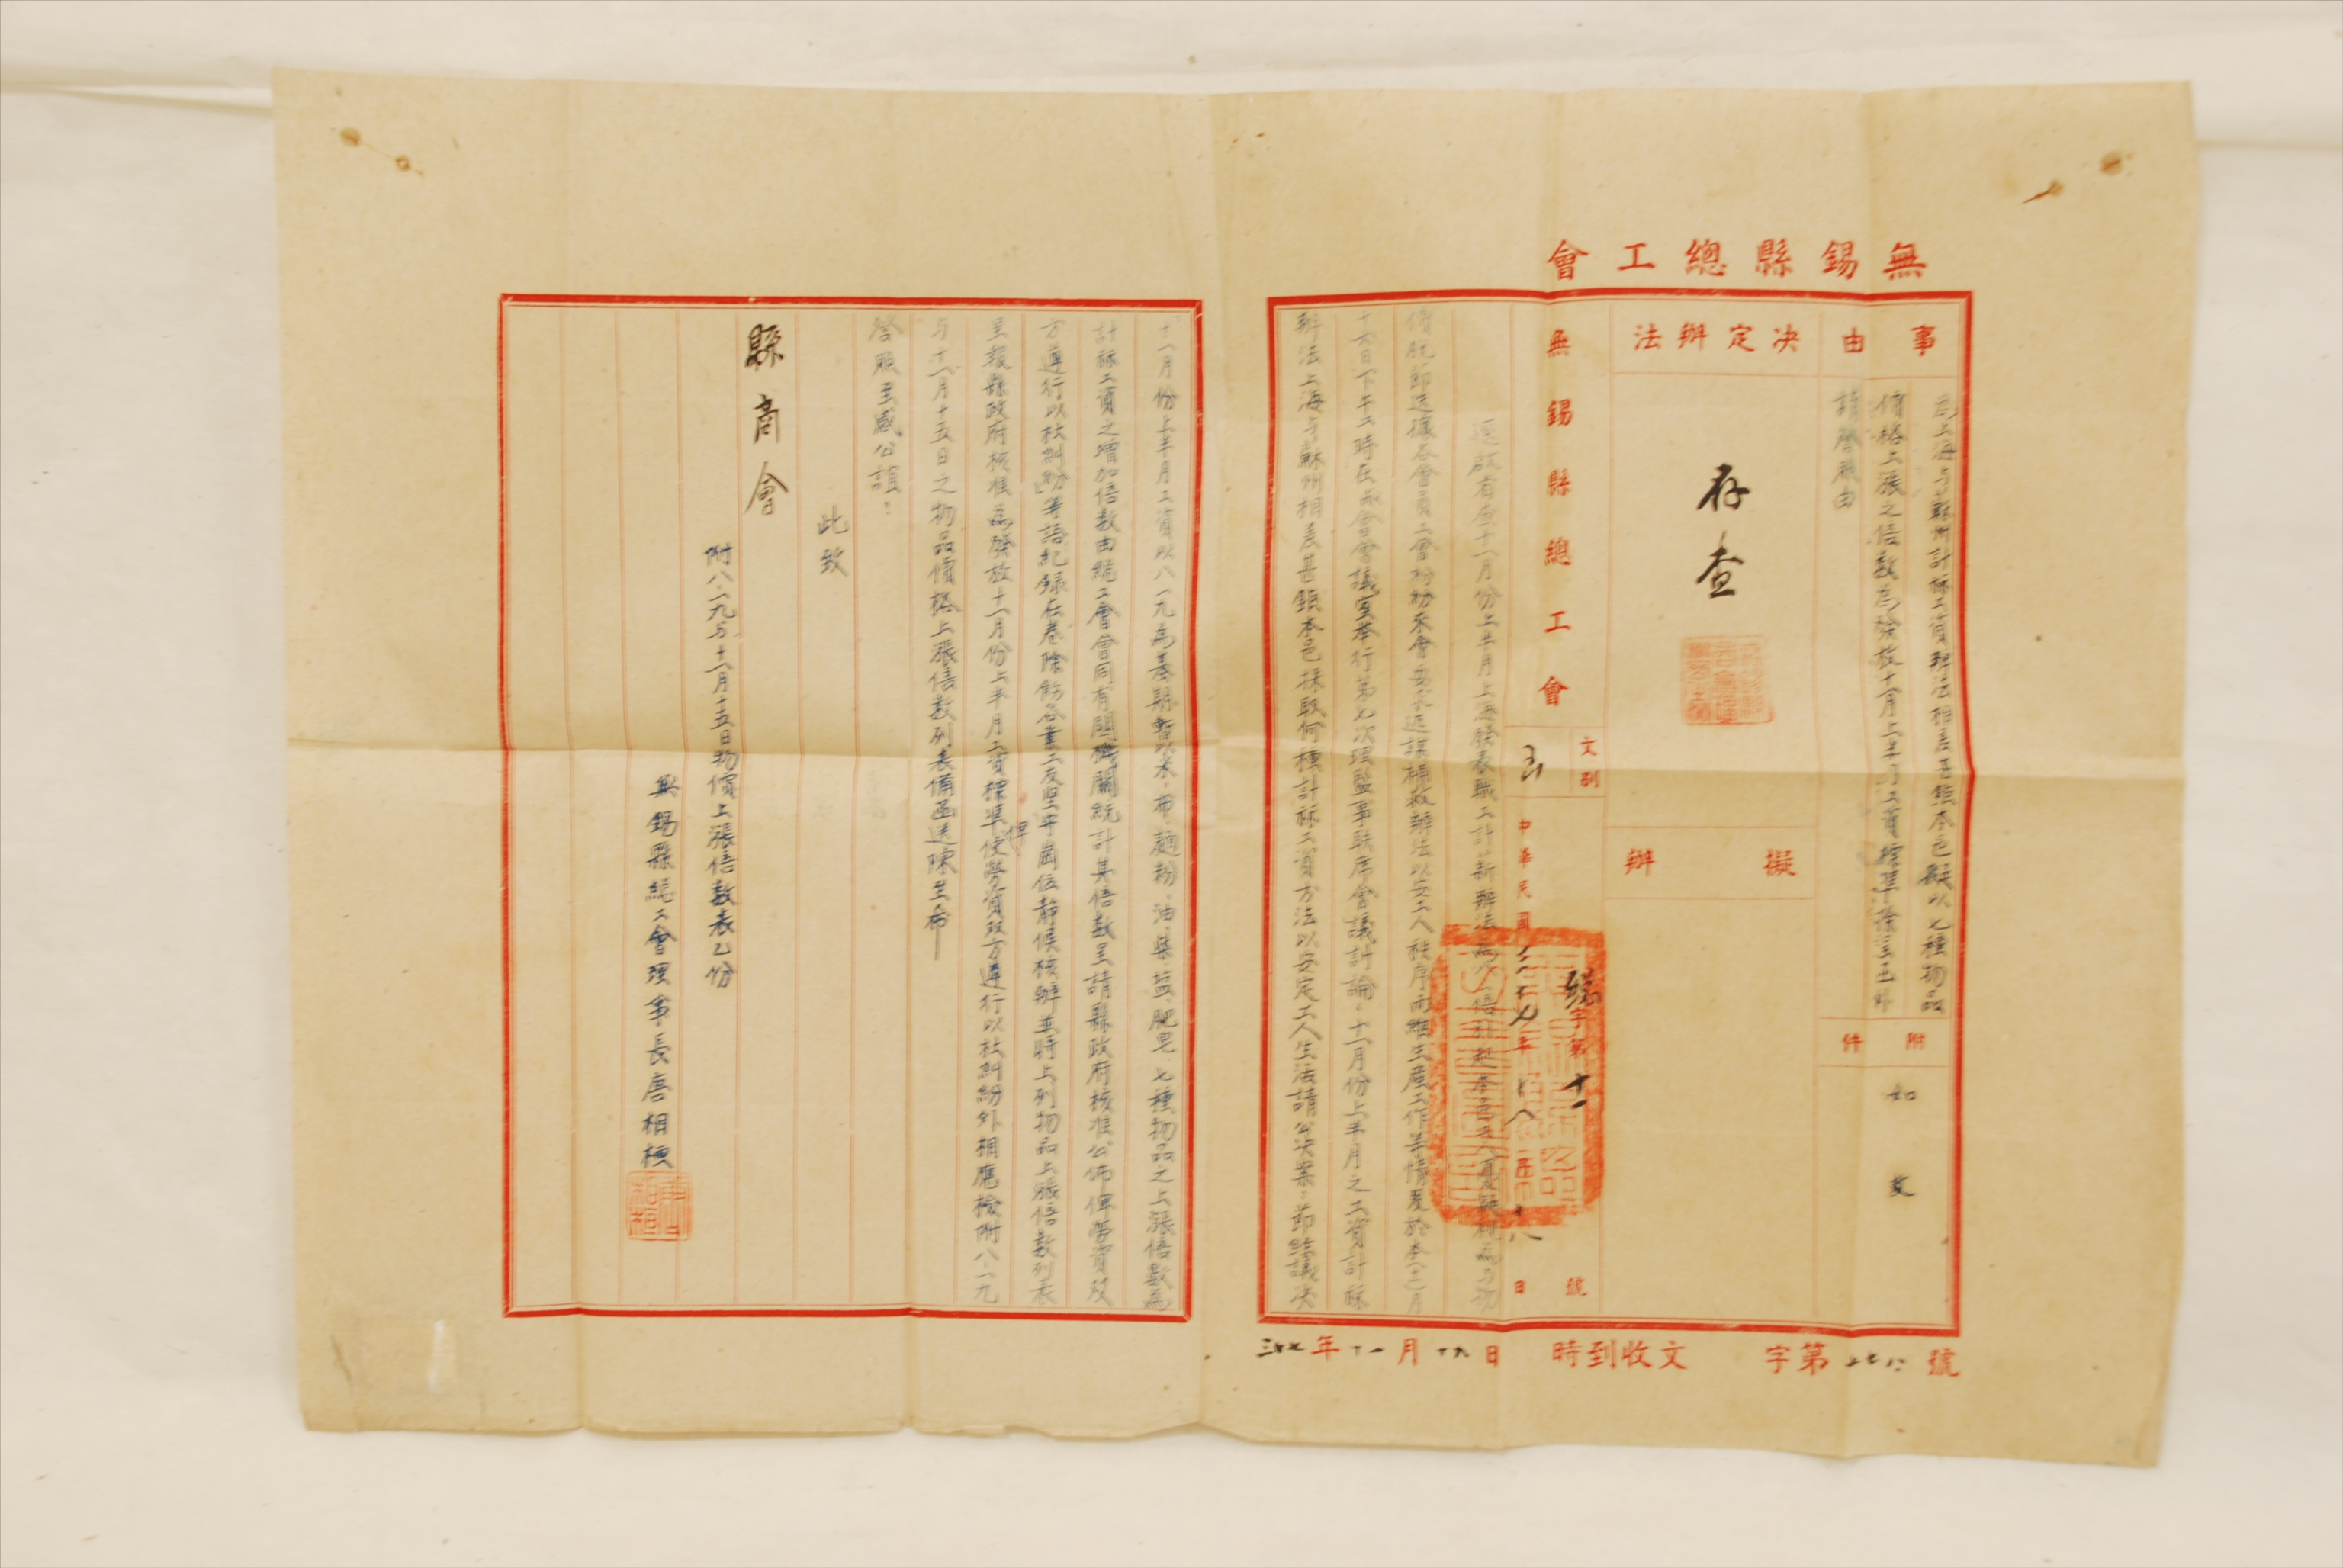 無錫縣總工會
事由
為上海与蘇州計祘工資辦法相差甚鉅本邑擬以七種物品
價格上漲之倍数為發放十一月上半月工資標準除呈五外
請詧照由
附件
如文
決定辦法
存查
擬辦
無錫縣總工會
文別
中華民國三十七年十一月十八日
總字第十一號
逕啟者查十一月份上半月上海發表職工計薪辦法為八倍引起本邑工人
價脫節迭據各會員工會紛紛來會要求迅謀補救辦法以安工人秩序而維生產工作等情爰於本(十一)月
十六日下午二時在本會會議室舉行第七次理監事联席會議討論：十一月份上半月之工資計祘
辦法上海与蘇州相差甚鉅本邑採取何種計祘工資方法以安定工人生活請公決案：節經議決
十一月份上半月工資以八一九為基點暫以米．布．麵粉．油．柴．盐．肥皂．七種物品之上漲倍數為
計祘工資之增加倍数由總工會會同有關機關統計其倍數呈請縣政府核准公佈俾勞資双
方遵行以杜糾紛等語紀錄在卷除飭各業工友堅守崗位靜候核辦並將上列物品上漲倍数列表
呈報縣政府核准為發放十一月份上半月工資標準俾使勞資双方遵行以杜糾紛外相應檢附八·一九
与十一月十五日之物品價格上漲倍数列表備函送陳至希
詧照至感公誼：
此致
縣商會
附八·一九与十一月十五日物價上漲倍数表乙份
無錫縣總工會理事長唐相桓
三十七年十一月十九日 時到收文 字第號